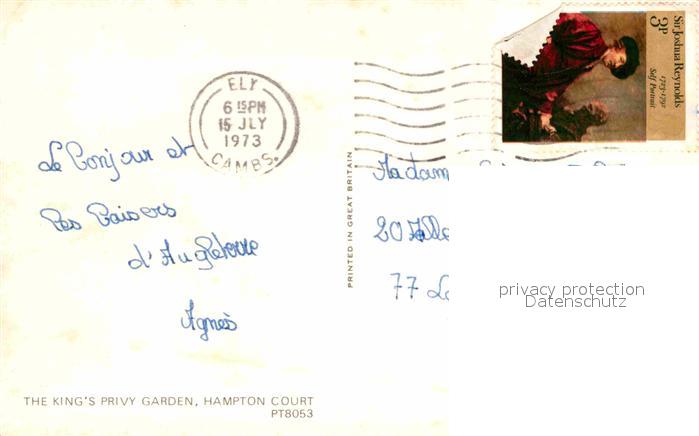 ELY
6 15PM
15 JLY
1973
CAMBS.
Sir Joshua Reynolds
1723-1792
Self Portrait
3P
Le bonjour et
les baisers
d'Angleterre
Agnès
PRINTED IN GREAT BRITAIN
Madam
20 Allé
77 Le
privacy protection
Datenschutz
THE KING'S PRIVY GARDEN, HAMPTON COURT
PT8053